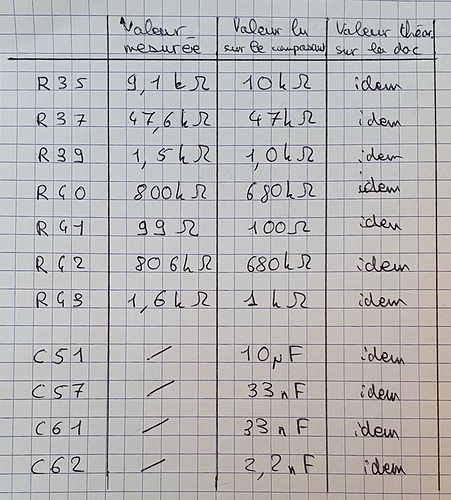 Valeur mesurée Valeur lu sur le composant Valeur théor. sur la doc
R35 9,1 kΩ 10kΩ idem
R37 47,6kΩ 47kΩ idem
R39 1,5kΩ 1,0kΩ idem
R40 800kΩ 680kΩ idem
R41 99Ω 100Ω idem
R42 806kΩ 680kΩ idem
R43 1,6kΩ 1kΩ idem
C51 / 10µF idem
C57 / 33nF idem
C61 / 33nF idem
C62 / 2,2nF idem